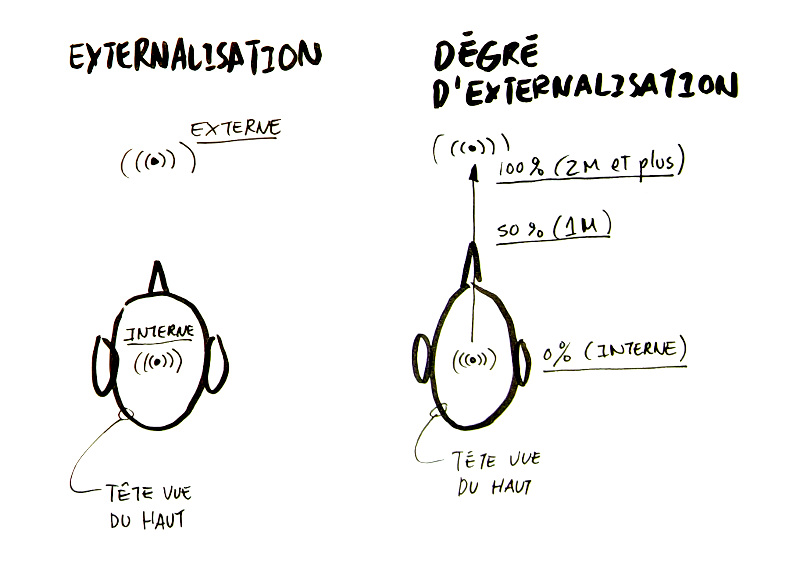 EXTERNALISATION
EXTERNE
INTERNE
TÊTE VUE
DU HAUT
DĒGRĒ
D'EXTERNALISATION
100% (2M et plus)
50% (1M)
0% (INTERNE)
TĒTE VUE
DU HAUT